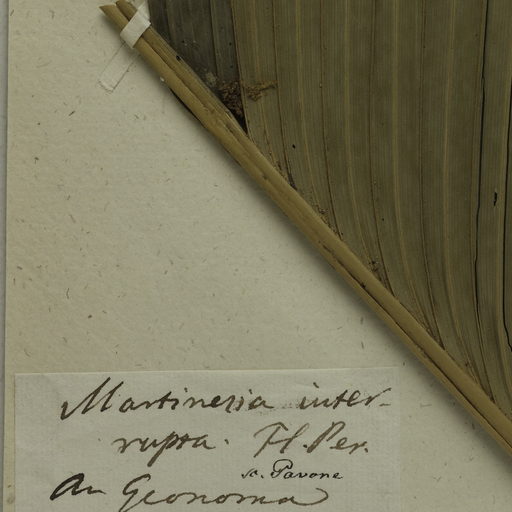 Martinezia inter-
rupta. Fl. Per.
sc. Pavone
An Geonoma